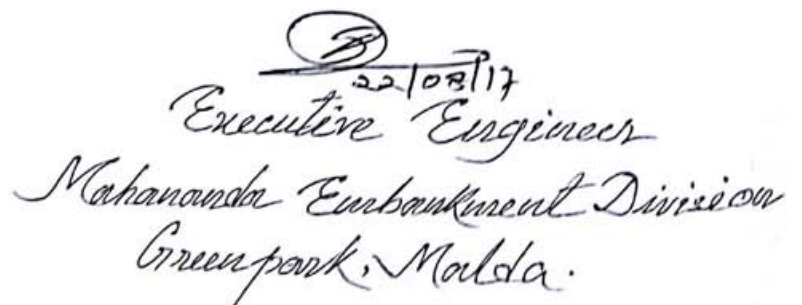 22/08/17
Executive Engineer
Mahananda Embankment Division
Greenpark, Malda.